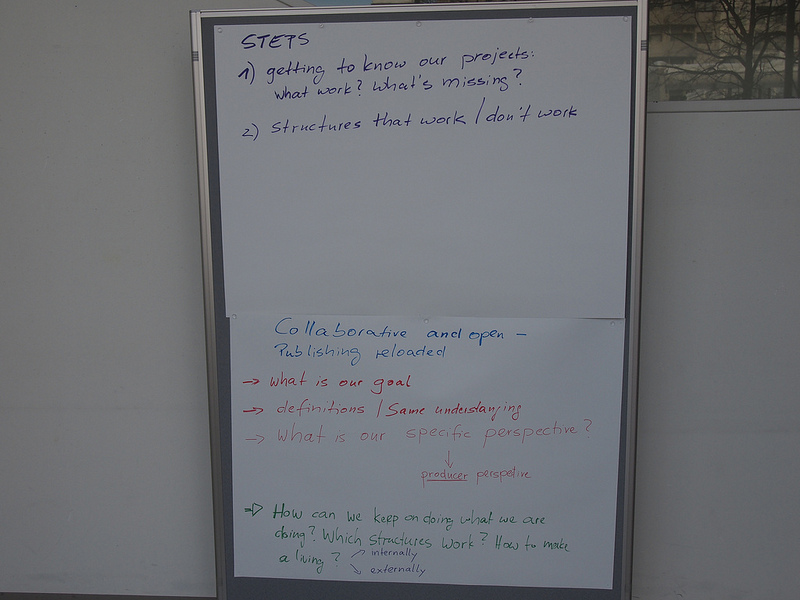 STEPS
1) getting to know our projects:
what work? what's missing?
2) structures that work / don't work
Collaborative and open –
Publishing reloaded
→ what is our goal
→ definitions / Same understanding
→ What is our specific perspective?
↓
producer perspetive
⇒ How can we keep on doing what we are
doing? Which structures work? How to make
a living? ↗ internally
↘ externally